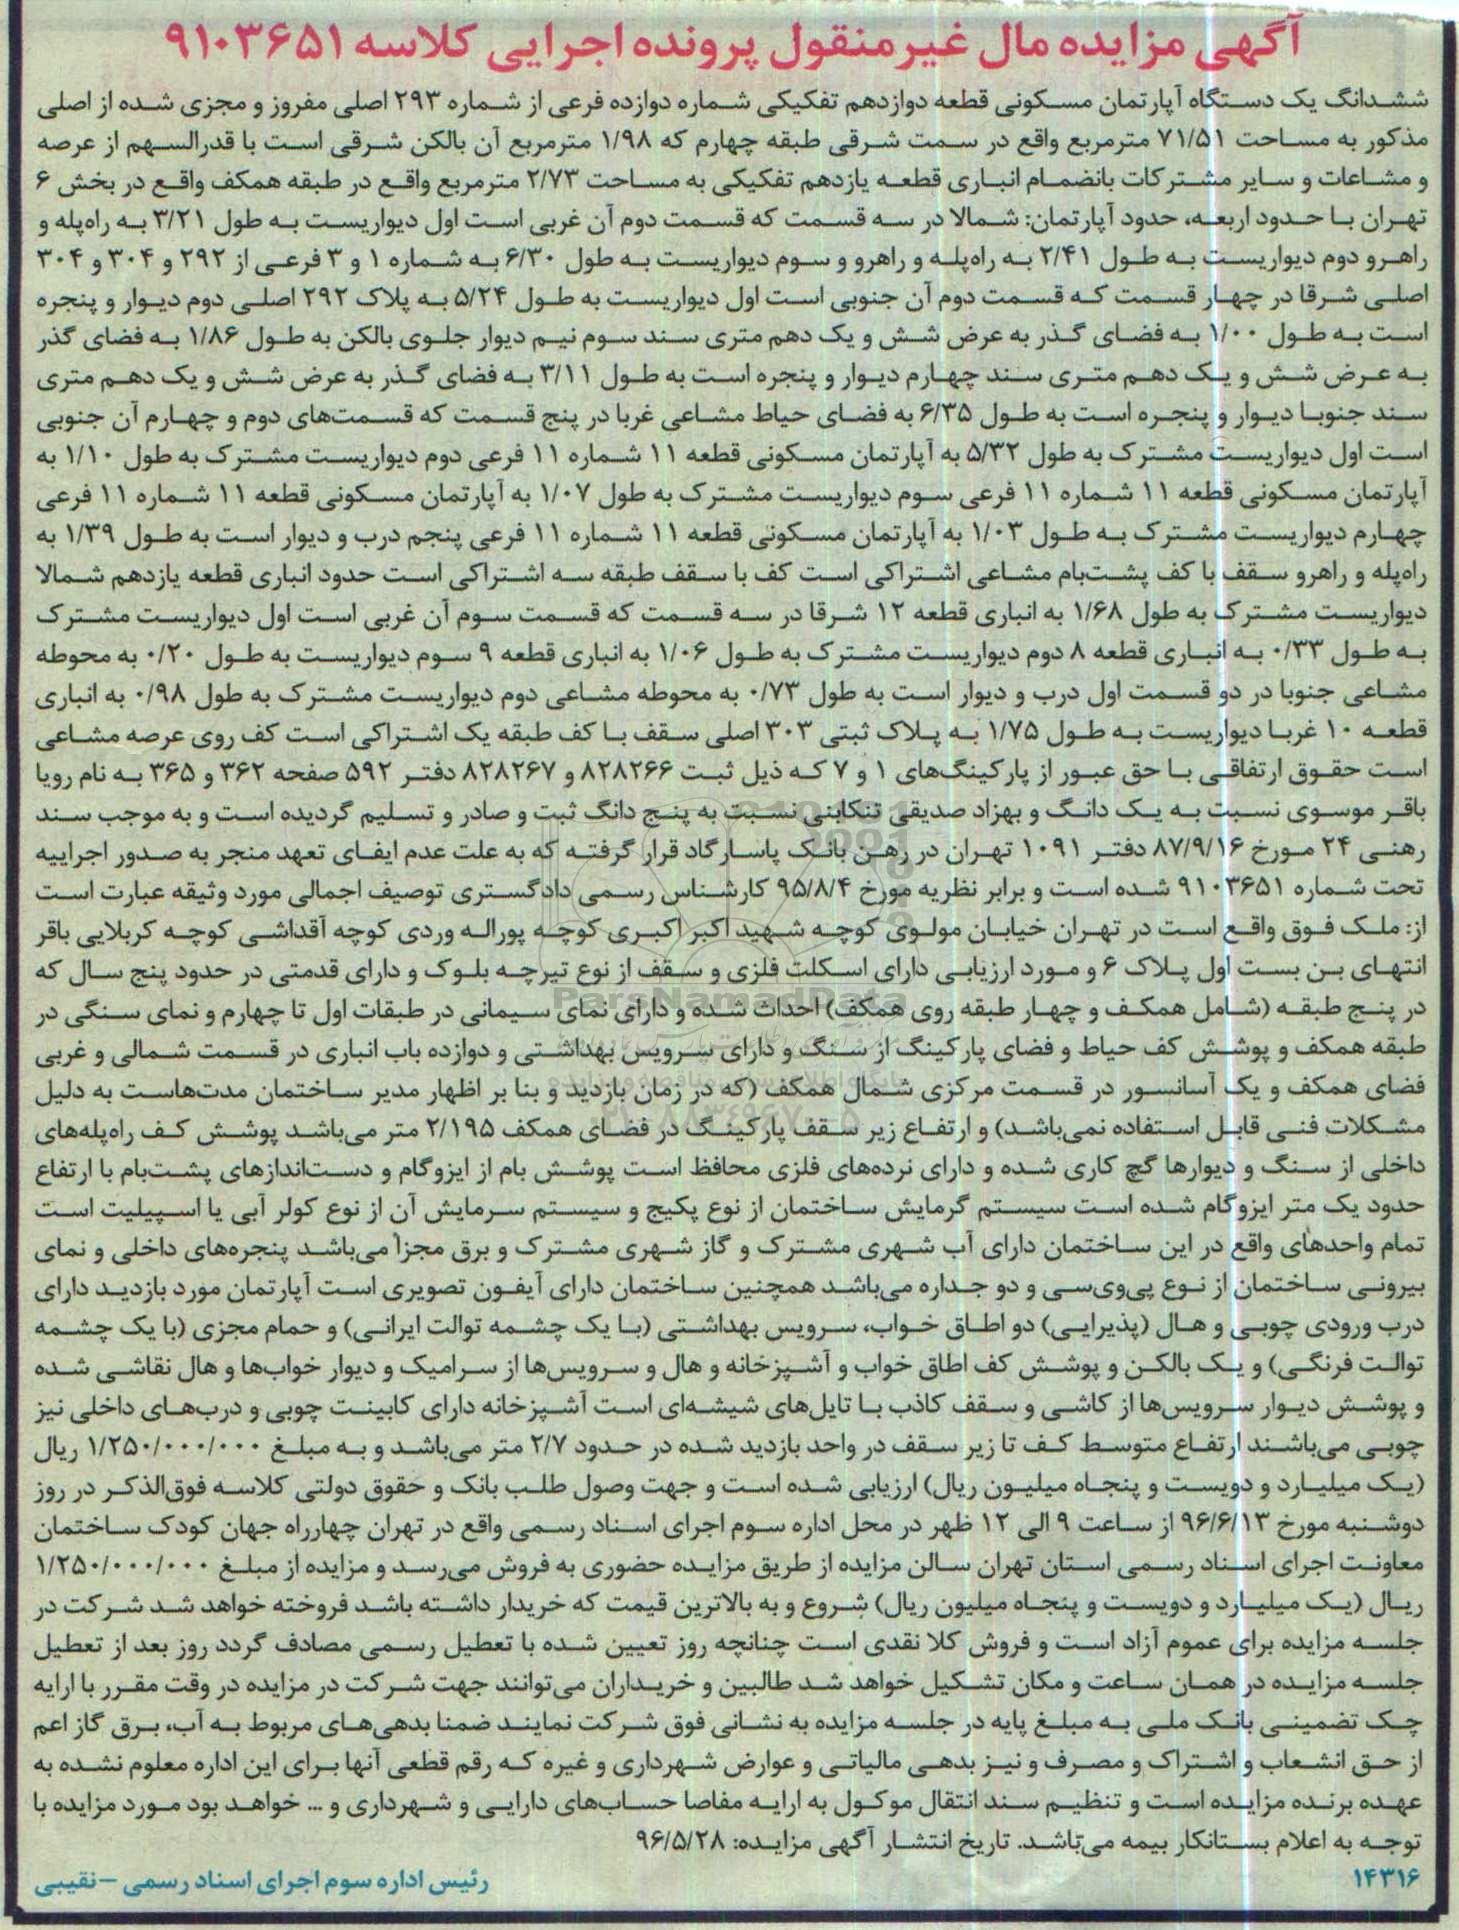 آگهی مزایده مال غیرمنقول پرونده اجرایی کلاسه ۹۱۰۳۶۵۱
ششدانگ یک دستگاه آپارتمان مسکونی قطعه دوازدهم تفکیکی شماره دوازده فرعی از شماره ۲۹۳ اصلی مفروز و مجزی شده از اصلی
مذکور به مساحت ۷۱/۵۱ مترمربع واقع در سمت شرقی طبقه چهارم که ۱/۹۸ مترمربع آن بالکن شرقی است با قدرالسهم از عرصه
و مشاعات و سایر مشترکات بانضمام انباری قطعه یازدهم تفکیکی به مساحت ۲/۷۳ مترمربع واقع در طبقه همکف واقع در بخش ۶
تهران با حدود اربعه، حدود آپارتمان: شمالا در سه قسمت که قسمت دوم آن غربی است اول دیواریست به طول ۳/۲۱ به راه‌پله و
راهرو دوم دیواریست به طول ۲/۴۱ به راه‌پله و راهرو و سوم دیواریست به طول ۶/۳۰ به شماره ۱ و ۳ فرعی از ۲۹۲ و ۳۰۴ و ۳۰۴
اصلی شرقا در چهار قسمت که قسمت دوم آن جنوبی است اول دیواریست به طول ۵/۲۴ به پلاک ۲۹۲ اصلی دوم دیوار و پنجره
است به طول ۱/۰۰ به فضای گذر به عرض شش و یک دهم متری سند سوم نیم دیوار جلوی بالکن به طول ۱/۸۶ به فضای گذر
به عرض شش و یک دهم متری سند چهارم دیوار و پنجره است به طول ۳/۱۱ به فضای گذر به عرض شش و یک دهم متری
سند جنوبا دیوار و پنجره است به طول ۶/۳۵ به فضای حیاط مشاعی غربا در پنج قسمت که قسمت‌های دوم و چهارم آن جنوبی
است اول دیواریست مشترک به طول ۵/۳۲ به آپارتمان مسکونی قطعه ۱۱ شماره ۱۱ فرعی دوم دیواریست مشترک به طول ۱/۱۰ به
آپارتمان مسکونی قطعه ۱۱ شماره ۱۱ فرعی سوم دیواریست مشترک به طول ۱/۰۷ به آپارتمان مسکونی قطعه ۱۱ شماره ۱۱ فرعی
چهارم دیواریست مشترک به طول ۱/۰۳ به آپارتمان مسکونی قطعه ۱۱ شماره ۱۱ فرعی پنجم درب و دیوار است به طول ۱/۳۹ به
راه‌پله و راهرو سقف با کف پشت‌بام مشاعی اشتراکی است کف با سقف طبقه سه اشتراکی است حدود انباری قطعه یازدهم شمالا
دیواریست مشترک به طول ۱/۶۸ به انباری قطعه ۱۲ شرقا در سه قسمت که قسمت سوم آن غربی است اول دیواریست مشترک
به طول ۰/۳۳ به انباری قطعه ۸ دوم دیواریست مشترک به طول ۱/۰۶ به انباری قطعه ۹ سوم دیواریست به طول ۰/۲۰ به محوطه
مشاعی جنوبا در دو قسمت اول درب و دیوار است به طول ۰/۷۳ به محوطه مشاعی دوم دیواریست مشترک به طول ۰/۹۸ به انباری
قطعه ۱۰ غربا دیواریست به طول ۱/۷۵ به پلاک ثبتی ۳۰۳ اصلی سقف با کف طبقه یک اشتراکی است کف روی عرصه مشاعی
است حقوق ارتفاقی با حق عبور از پارکینگ‌های ۱ و ۷ که ذیل ثبت ۸۲۸۲۶۶ و ۸۲۸۲۶۷ دفتر ۵۹۲ صفحه ۳۶۲ و ۳۶۵ به نام رویا
باقر موسوی نسبت به یک دانگ و بهزاد صدیقی تنکابنی نسبت به پنج دانگ ثبت و صادر و تسلیم گردیده است و به موجب سند
رهنی ۲۴ مورخ ۸۷/۹/۱۶ دفتر ۱۰۹۱ تهران در رهن بانک پاسارگاد قرار گرفته که به علت عدم ایفای تعهد منجر به صدور اجراییه
تحت شماره ۹۱۰۳۶۵۱ شده است و برابر نظریه مورخ ۹۵/۸/۴ کارشناس رسمی دادگستری توصیف اجمالی مورد وثیقه عبارت است
از: ملک فوق واقع است در تهران خیابان مولوی کوچه شهید اکبر اکبری کوچه پوراله وردی کوچه آقداشی کوچه کربلایی باقر
انتهای بن بست اول پلاک ۶ و مورد ارزیابی دارای اسکلت فلزی و سقف از نوع تیرچه بلوک و دارای قدمتی در حدود پنج سال که
در پنج طبقه (شامل همکف و چهار طبقه روی همکف) احداث شده و دارای نمای سیمانی در طبقات اول تا چهارم و نمای سنگی در
طبقه همکف و پوشش کف حیاط و فضای پارکینگ از سنگ و دارای سرویس بهداشتی و دوازده باب انباری در قسمت شمالی و غربی
فضای همکف و یک آسانسور در قسمت مرکزی شمال همکف (که در زمان بازدید و بنا بر اظهار مدیر ساختمان مدت‌هاست به دلیل
مشکلات فنی قابل استفاده نمی‌باشد) و ارتفاع زیر سقف پارکینگ در فضای همکف ۲/۱۹۵ متر می‌باشد پوشش کف راه‌پله‌های
داخلی از سنگ و دیوارها گچ کاری شده و دارای نرده‌های فلزی محافظ است پوشش بام از ایزوگام و دست‌اندازهای پشت‌بام با ارتفاع
حدود یک متر ایزوگام شده است سیستم گرمایش ساختمان از نوع پکیج و سیستم سرمایش آن از نوع کولر آبی یا اسپیلیت است
تمام واحدهای واقع در این ساختمان دارای آب شهری مشترک و گاز شهری مشترک و برق مجزا می‌باشد پنجره‌های داخلی و نمای
بیرونی ساختمان از نوع پی‌وی‌سی و دو جداره می‌باشد همچنین ساختمان دارای آیفون تصویری است آپارتمان مورد بازدید دارای
درب ورودی چوبی و هال (پذیرایی) دو اطاق خواب، سرویس بهداشتی (با یک چشمه توالت ایرانی) و حمام مجزی (با یک چشمه
توالت فرنگی) و یک بالکن و پوشش کف اطاق خواب و آشپزخانه و هال و سرویس‌ها از سرامیک و دیوار خواب‌ها و هال نقاشی شده
و پوشش دیوار سرویس‌ها از کاشی و سقف کاذب با تایل‌های شیشه‌ای است آشپزخانه دارای کابینت چوبی و درب‌های داخلی نیز
چوبی می‌باشند ارتفاع متوسط کف تا زیر سقف در واحد بازدید شده در حدود ۲/۷ متر می‌باشد و به مبلغ ۱/۲۵۰/۰۰۰/۰۰۰ ریال
(یک میلیارد و دویست و پنجاه میلیون ریال) ارزیابی شده است و جهت وصول طلب بانک و حقوق دولتی کلاسه فوق‌الذکر در روز
دوشنبه مورخ ۹۶/۶/۱۳ از ساعت ۹ الی ۱۲ ظهر در محل اداره سوم اجرای اسناد رسمی واقع در تهران چهارراه جهان کودک ساختمان
معاونت اجرای اسناد رسمی استان تهران سالن مزایده از طریق مزایده حضوری به فروش می‌رسد و مزایده از مبلغ ۱/۲۵۰/۰۰۰/۰۰۰
ریال (یک میلیارد و دویست و پنجاه میلیون ریال) شروع و به بالاترین قیمت که خریدار داشته باشد فروخته خواهد شد شرکت در
جلسه مزایده برای عموم آزاد است و فروش کلا نقدی است چنانچه روز تعیین شده با تعطیل رسمی مصادف گردد روز بعد از تعطیل
جلسه مزایده در همان ساعت و مکان تشکیل خواهد شد طالبین و خریداران می‌توانند جهت شرکت در مزایده در وقت مقرر با ارایه
چک تضمینی بانک ملی به مبلغ پایه در جلسه مزایده به نشانی فوق شرکت نمایند ضمنا بدهی‌های مربوط به آب، برق گاز اعم
از حق انشعاب و اشتراک و مصرف و نیز بدهی مالیاتی و عوارض شهرداری و غیره که رقم قطعی آنها برای این اداره معلوم نشده به
عهده برنده مزایده است و تنظیم سند انتقال موکول به ارایه مفاصا حساب‌های دارایی و شهرداری و ... خواهد بود مورد مزایده با
توجه به اعلام بستانکار بیمه می‌باشد. تاریخ انتشار آگهی مزایده: ۹۶/۵/۲۸
۱۴۳۱۶ رئیس اداره سوم اجرای اسناد رسمی – نقیبی
ParsNamadData